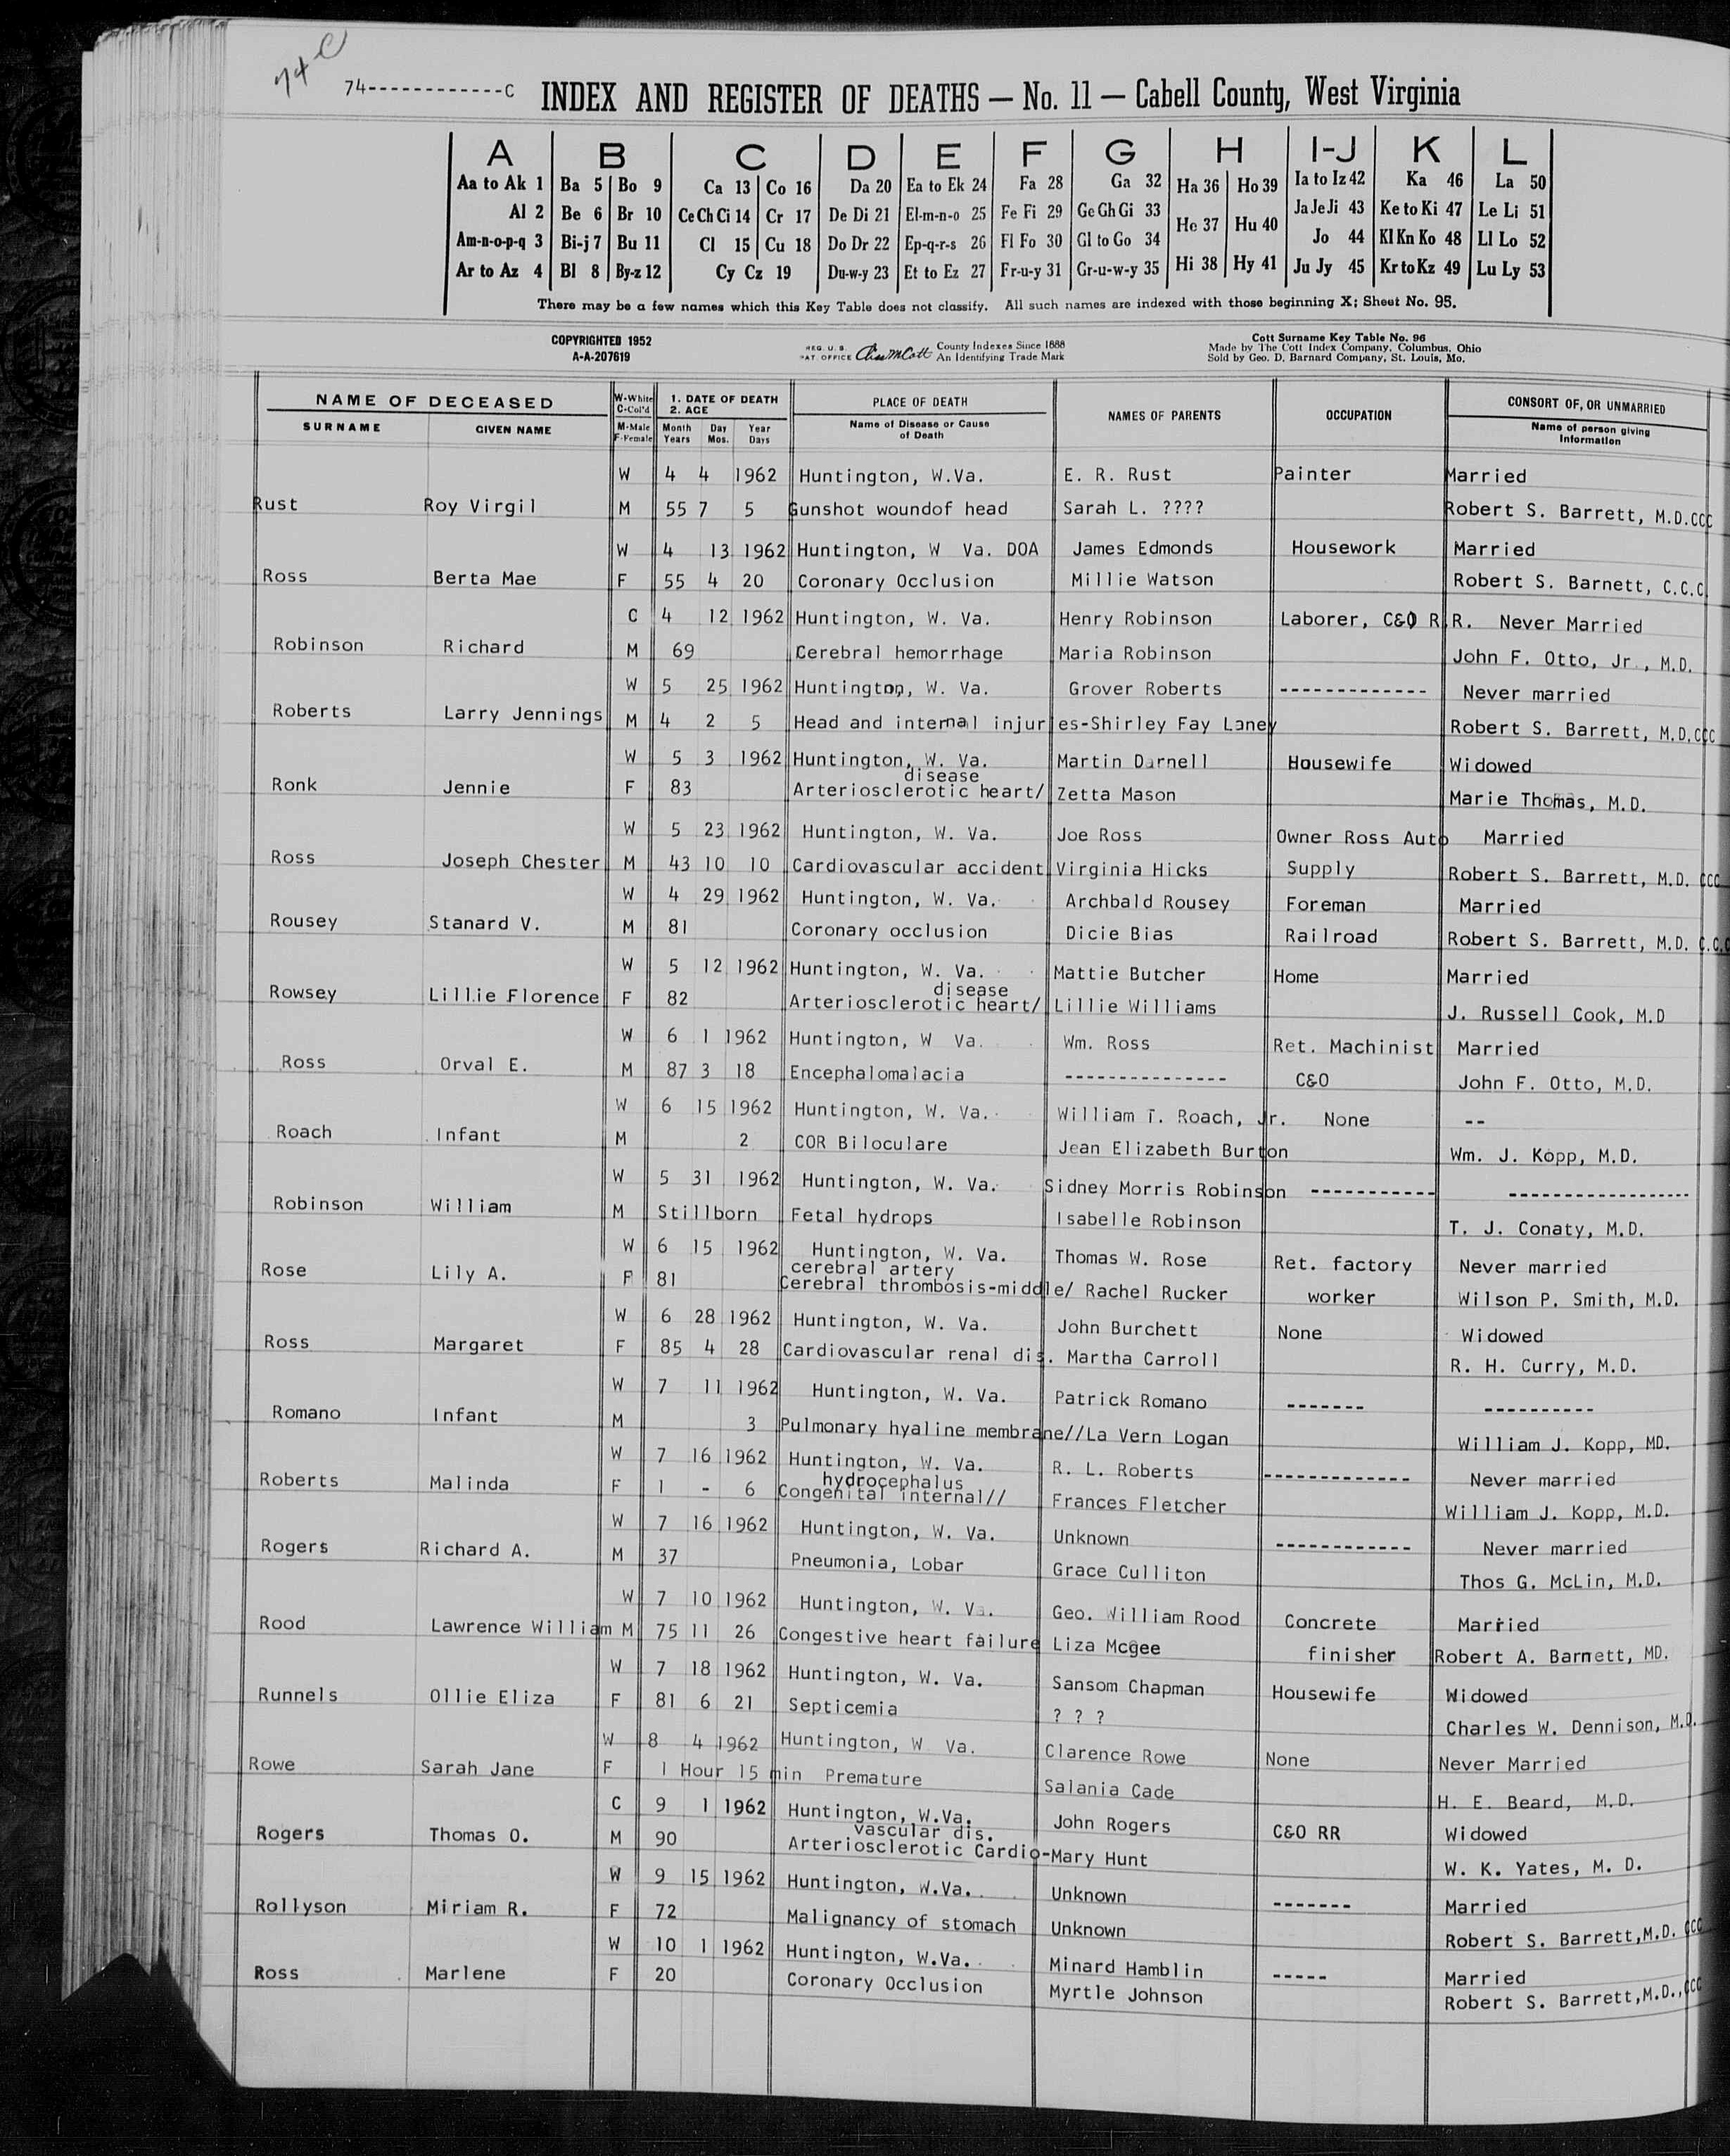 74 C
74------------C INDEX AND REGISTER OF DEATHS — No. 11 — Cabell County, West Virginia
A B C D E F G H I-J K L
Aa to Ak 1 Ba 5 Bo 9 Ca 13 Co 16 Da 20 Ea to Ek 24 Fa 28 Ga 32 Ha 36 Ho 39 Ia to Iz 42 Ka 46 La 50
Al 2 Be 6 Br 10 Ce Ch Ci 14 Cr 17 De Di 21 El-m-n-o 25 Fe Fi 29 Ge Gh Gi 33 He 37 Hu 40 Ja Je Ji 43 Ke to Ki 47 Le Li 51
Am-n-o-p-q 3 Bi-j 7 Bu 11 Cl 15 Cu 18 Do Dr 22 Ep-q-r-s 26 Fl Fo 30 Gl to Go 34 Jo 44 Kl Kn Ko 48 Ll Lo 52
Ar to Az 4 Bl 8 By-z 12 Cy Cz 19 Du-w-y 23 Et to Ez 27 Fr-u-y 31 Gr-u-w-y 35 Hi 38 Hy 41 Ju Jy 45 Kr to Kz 49 Lu Ly 53
There may be a few names which this Key Table does not classify. All such names are indexed with those beginning X; Sheet No. 95.
COPYRIGHTED 1952
A-A-207619
REG. U. S. PAT. OFFICE County Indexes Since 1888
An Identifying Trade Mark
Cott Surname Key Table No. 96
Made by The Cott Index Company, Columbus, Ohio
Sold by Geo. D. Barnard Company, St. Louis, Mo.
NAME OF DECEASED W-White C-Col'd 1. DATE OF DEATH 2. AGE PLACE OF DEATH NAMES OF PARENTS OCCUPATION CONSORT OF, OR UNMARRIED
SURNAME GIVEN NAME M-Male F-Female Month Years Day Mos. Year Days Name of Disease or Cause of Death Name of person giving Information
W 4 4 1962 Huntington, W.Va. E. R. Rust Painter Married
Rust Roy Virgil M 55 7 5 Gunshot woundof head Sarah L. ???? Robert S. Barrett, M.D.CCC
W 4 13 1962 Huntington, W Va. DOA James Edmonds Housework Married
Ross Berta Mae F 55 4 20 Coronary Occlusion Millie Watson Robert S. Barnett, C.C.C.
C 4 12 1962 Huntington, W. Va. Henry Robinson Laborer, C&O R.R. Never Married
Robinson Richard M 69 Cerebral hemorrhage Maria Robinson John F. Otto, Jr., M.D.
W 5 25 1962 Huntington, W. Va. Grover Roberts -------------- Never married
Roberts Larry Jennings M 4 2 5 Head and internal injuries-Shirley Fay Laney Robert S. Barrett, M.D.CCC
W 5 3 1962 Huntington, W. Va. Martin Darnell Housewife Widowed
disease
Ronk Jennie F 83 Arteriosclerotic heart/ Zetta Mason Marie Thomas, M.D.
W 5 23 1962 Huntington, W. Va. Joe Ross Owner Ross Auto Married
Ross Joseph Chester M 43 10 10 Cardiovascular accident Virginia Hicks Supply Robert S. Barrett, M.D. CCC
W 4 29 1962 Huntington, W. Va. Archbald Rousey Foreman Married
Rousey Stanard V. M 81 Coronary occlusion Dicie Bias Railroad Robert S. Barrett, M.D. C.C.C
W 5 12 1962 Huntington, W. Va. Mattie Butcher Home Married
disease
Rowsey Lillie Florence F 82 Arteriosclerotic heart/ Lillie Williams J. Russell Cook, M.D
W 6 1 1962 Huntington, W Va. Wm. Ross Ret. Machinist Married
Ross Orval E. M 87 3 18 Encephalomalacia --------------- C&O John F. Otto, M.D.
W 6 15 1962 Huntington, W. Va. William T. Roach, Jr. None --
Roach Infant M 2 COR Biloculare Jean Elizabeth Burton Wm. J. Kopp, M.D.
W 5 31 1962 Huntington, W. Va. Sidney Morris Robinson ----------- -----------------
Robinson William M Stillborn Fetal hydrops Isabelle Robinson T. J. Conaty, M.D.
W 6 15 1962 Huntington, W. Va. Thomas W. Rose Ret. factory Never married
cerebral artery
Rose Lily A. F 81 Cerebral thrombosis-middle/ Rachel Rucker worker Wilson P. Smith, M.D.
W 6 28 1962 Huntington, W. Va. John Burchett None Widowed
Ross Margaret F 85 4 28 Cardiovascular renal dis. Martha Carroll R. H. Curry, M.D.
W 7 11 1962 Huntington, W. Va. Patrick Romano ------- ----------
Romano Infant M 3 Pulmonary hyaline membrane//La Vern Logan William J. Kopp, MD.
W 7 16 1962 Huntington, W. Va. R. L. Roberts ------------- Never married
hydrocephalus
Roberts Malinda F 1 - 6 Congenital internal// Frances Fletcher William J. Kopp, M.D.
W 7 16 1962 Huntington, W. Va. Unknown ------------ Never married
Rogers Richard A. M 37 Pneumonia, Lobar Grace Culliton Thos G. McLin, M.D.
W 7 10 1962 Huntington, W. Va. Geo. William Rood Concrete Married
Rood Lawrence William M 75 11 26 Congestive heart failure Liza Mcgee finisher Robert A. Barnett, MD.
W 7 18 1962 Huntington, W. Va. Sansom Chapman Housewife Widowed
Runnels Ollie Eliza F 81 6 21 Septicemia ? ? ? Charles W. Dennison, M.D.
W 8 4 1962 Huntington, W Va. Clarence Rowe None Never Married
Rowe Sarah Jane F 1 Hour 15 min Premature Salania Cade H. E. Beard, M.D.
C 9 1 1962 Huntington, W.Va. John Rogers C&O RR Widowed
vascular dis.
Rogers Thomas O. M 90 Arteriosclerotic Cardio-Mary Hunt W. K. Yates, M. D.
W 9 15 1962 Huntington, W.Va. Unknown ------- Married
Rollyson Miriam R. F 72 Malignancy of stomach Unknown Robert S. Barrett,M.D. CCC
W 10 1 1962 Huntington, W.Va. Minard Hamblin ----- Married
Ross Marlene F 20 Coronary Occlusion Myrtle Johnson Robert S. Barrett,M.D.,CCC